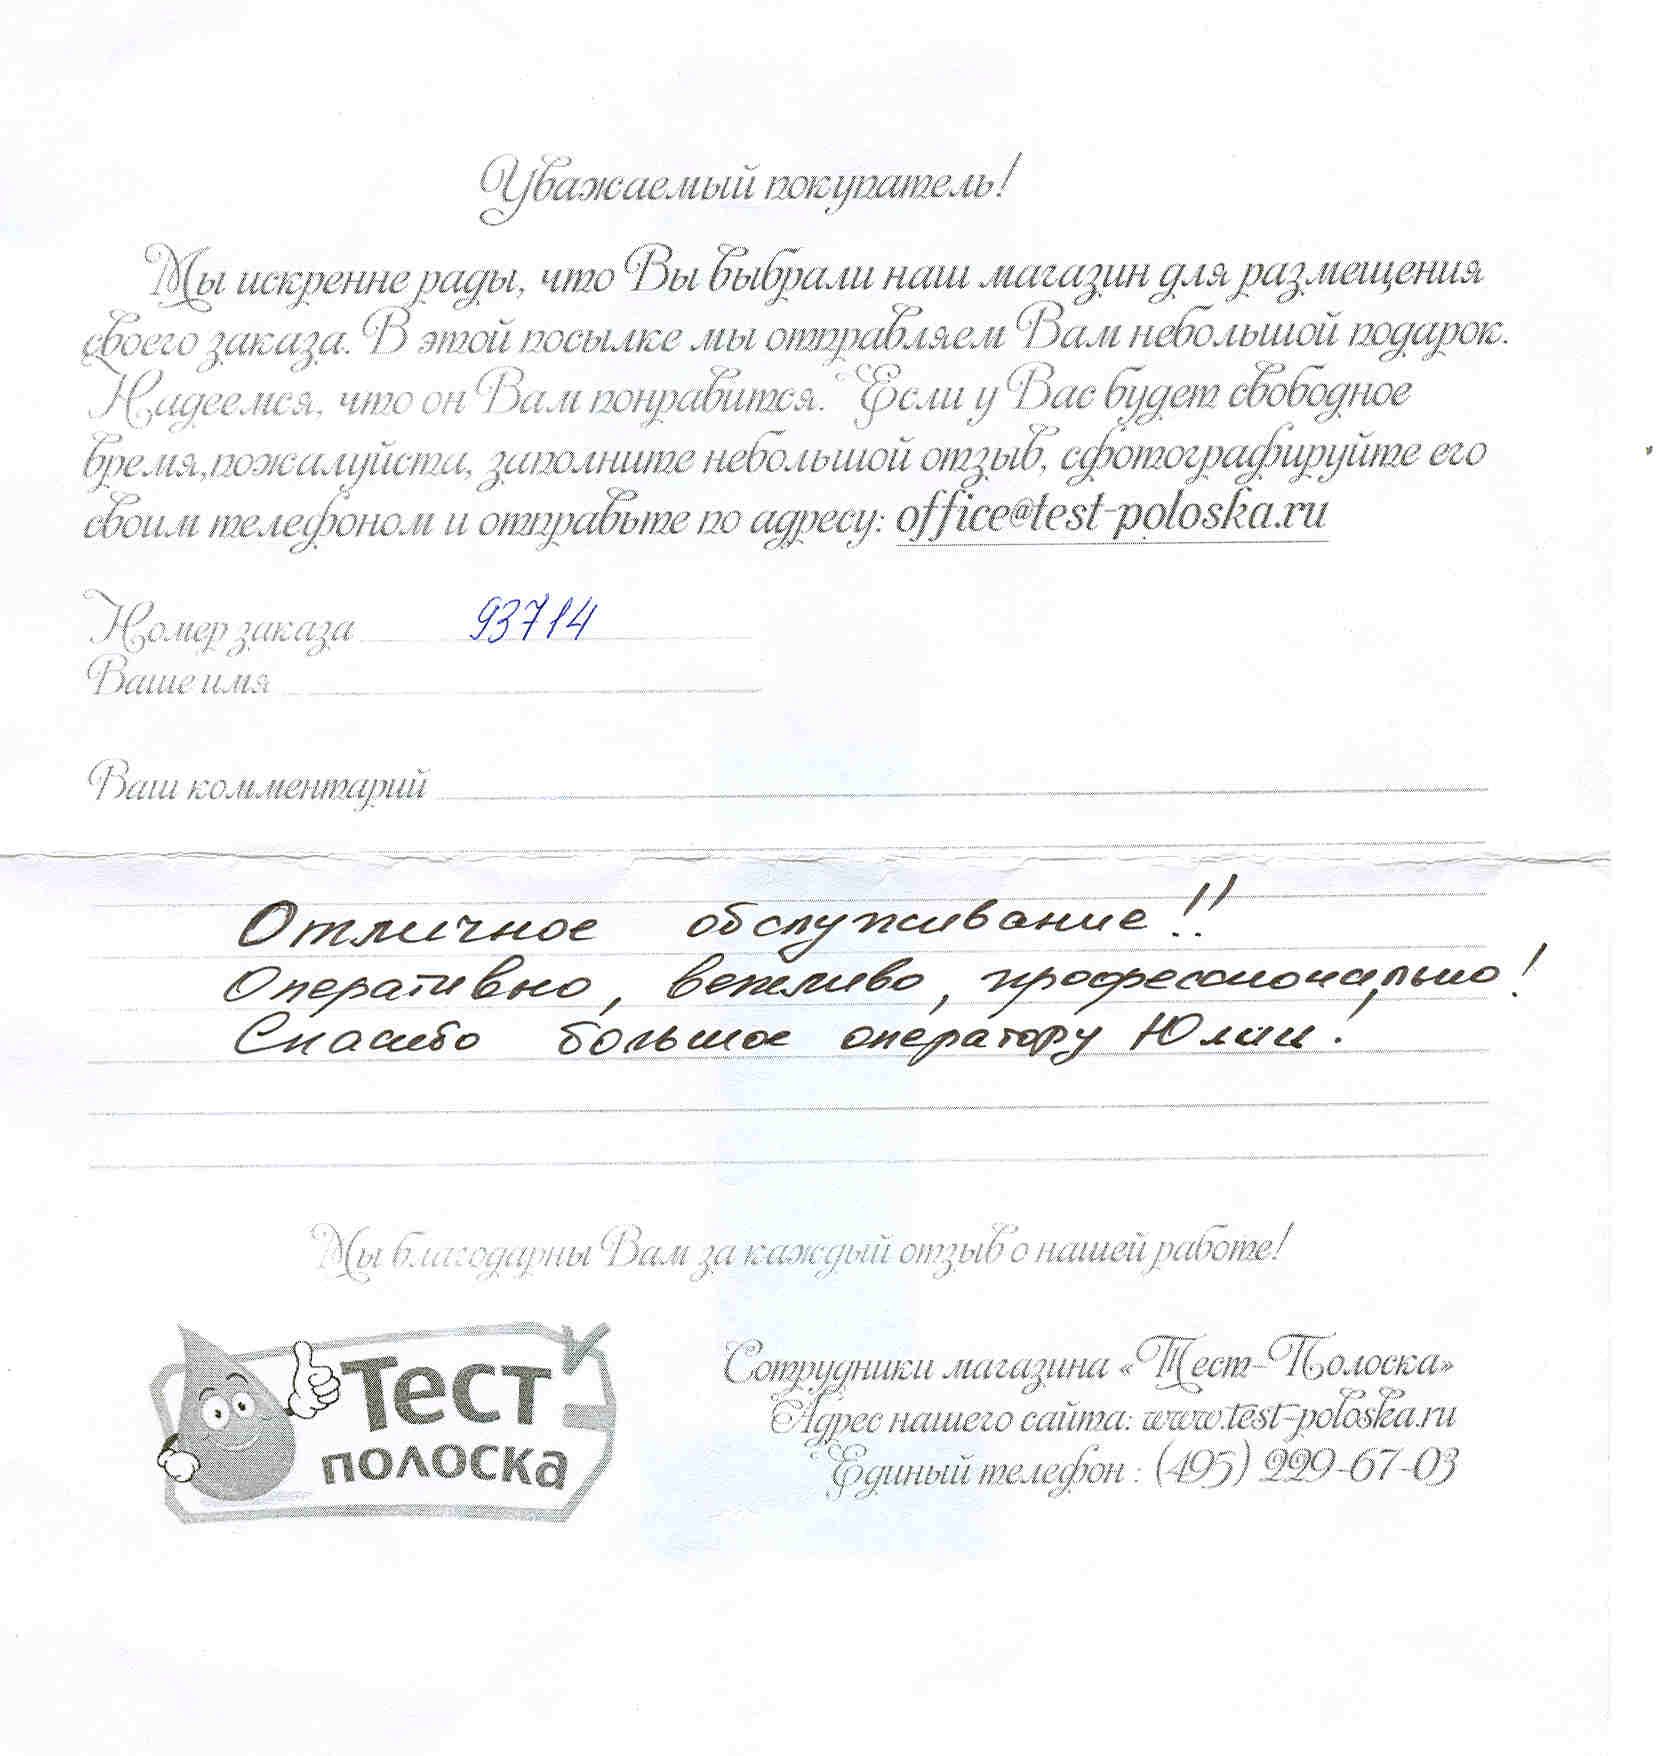 Уважаемый покупатель!
Мы искренне рады, что Вы выбрали наш магазин для размещения
своего заказа. В этой посылке мы отправляем Вам небольшой подарок.
Надеемся, что он Вам понравится. Если у Вас будет свободное
время,пожалуйста, заполните небольшой отзыв, сфотографируйте его
своим телефоном и отправьте по адресу: office@test-poloska.ru
Номер заказа 93714
Ваше имя
Ваш комментарий
Отличное обслуживание!!
Оперативно, вежливо, профессионально!
Спасибо большое оператору Юлии!
Мы благодарны Вам за каждый отзыв о нашей работе!
Тест
полоска
Сотрудники магазина «Тест-Полоска»
Адрес нашего сайта: www.test-poloska.ru
Единый телефон : (495) 229-67-03